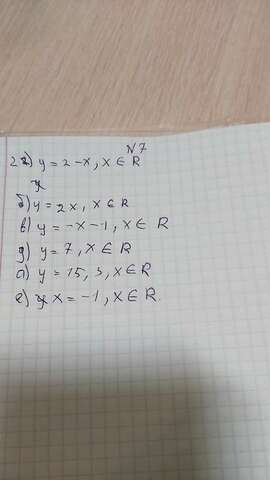 N7
2 а) y = 2 - x, x ∈ R
б) y = 2x, x ∈ R
в) y = -x - 1, x ∈ R
д) y = 7, x ∈ R
а) y = 15, 3, x ∈ R
е) x = -1, x ∈ R.